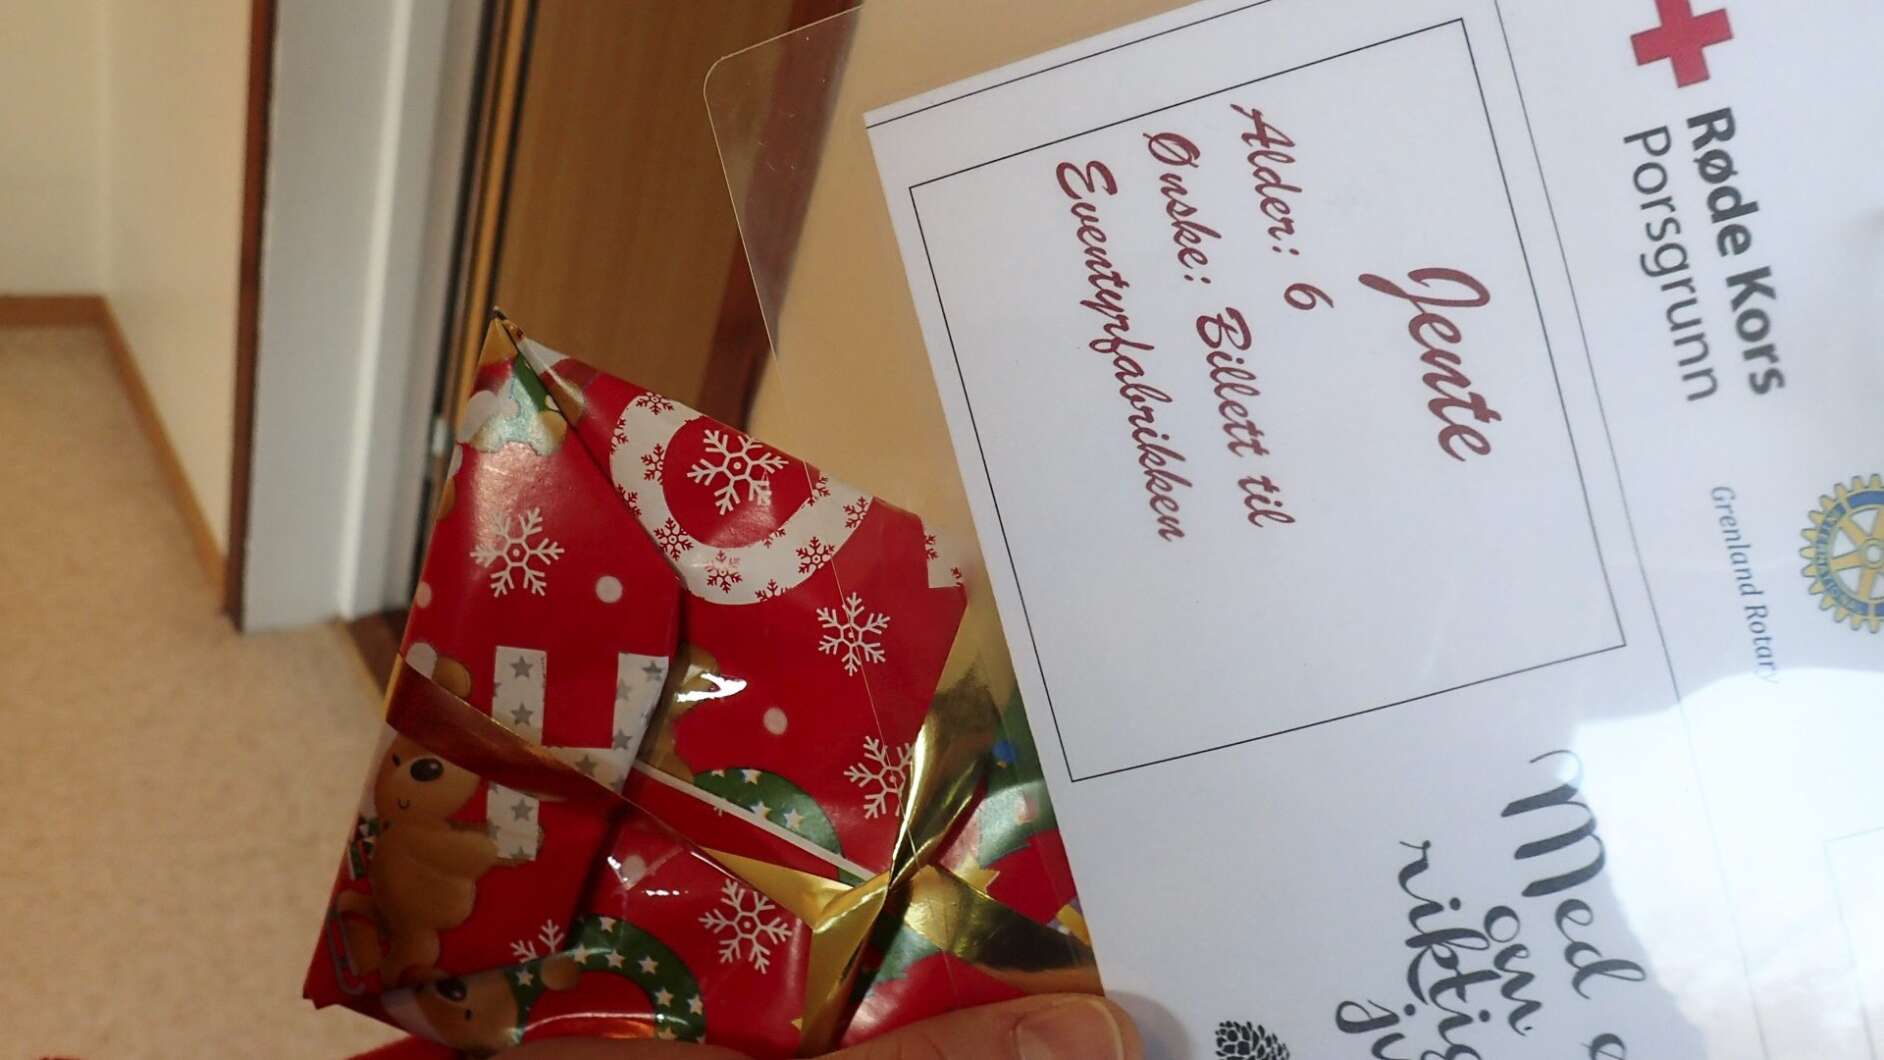 Røde Kors
Porsgrunn
Grenland Rotary
Jente
Alder: 6
Ønske: Billett til
Eventyrfabrikken
Med
om